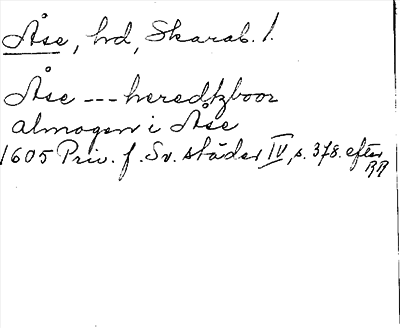 Åse, hd, Skarab. l.
Åse --- heredtzboor
almogen i Åse
1605 Priv. f. Sv. städer IV, s. 378. efter
RR